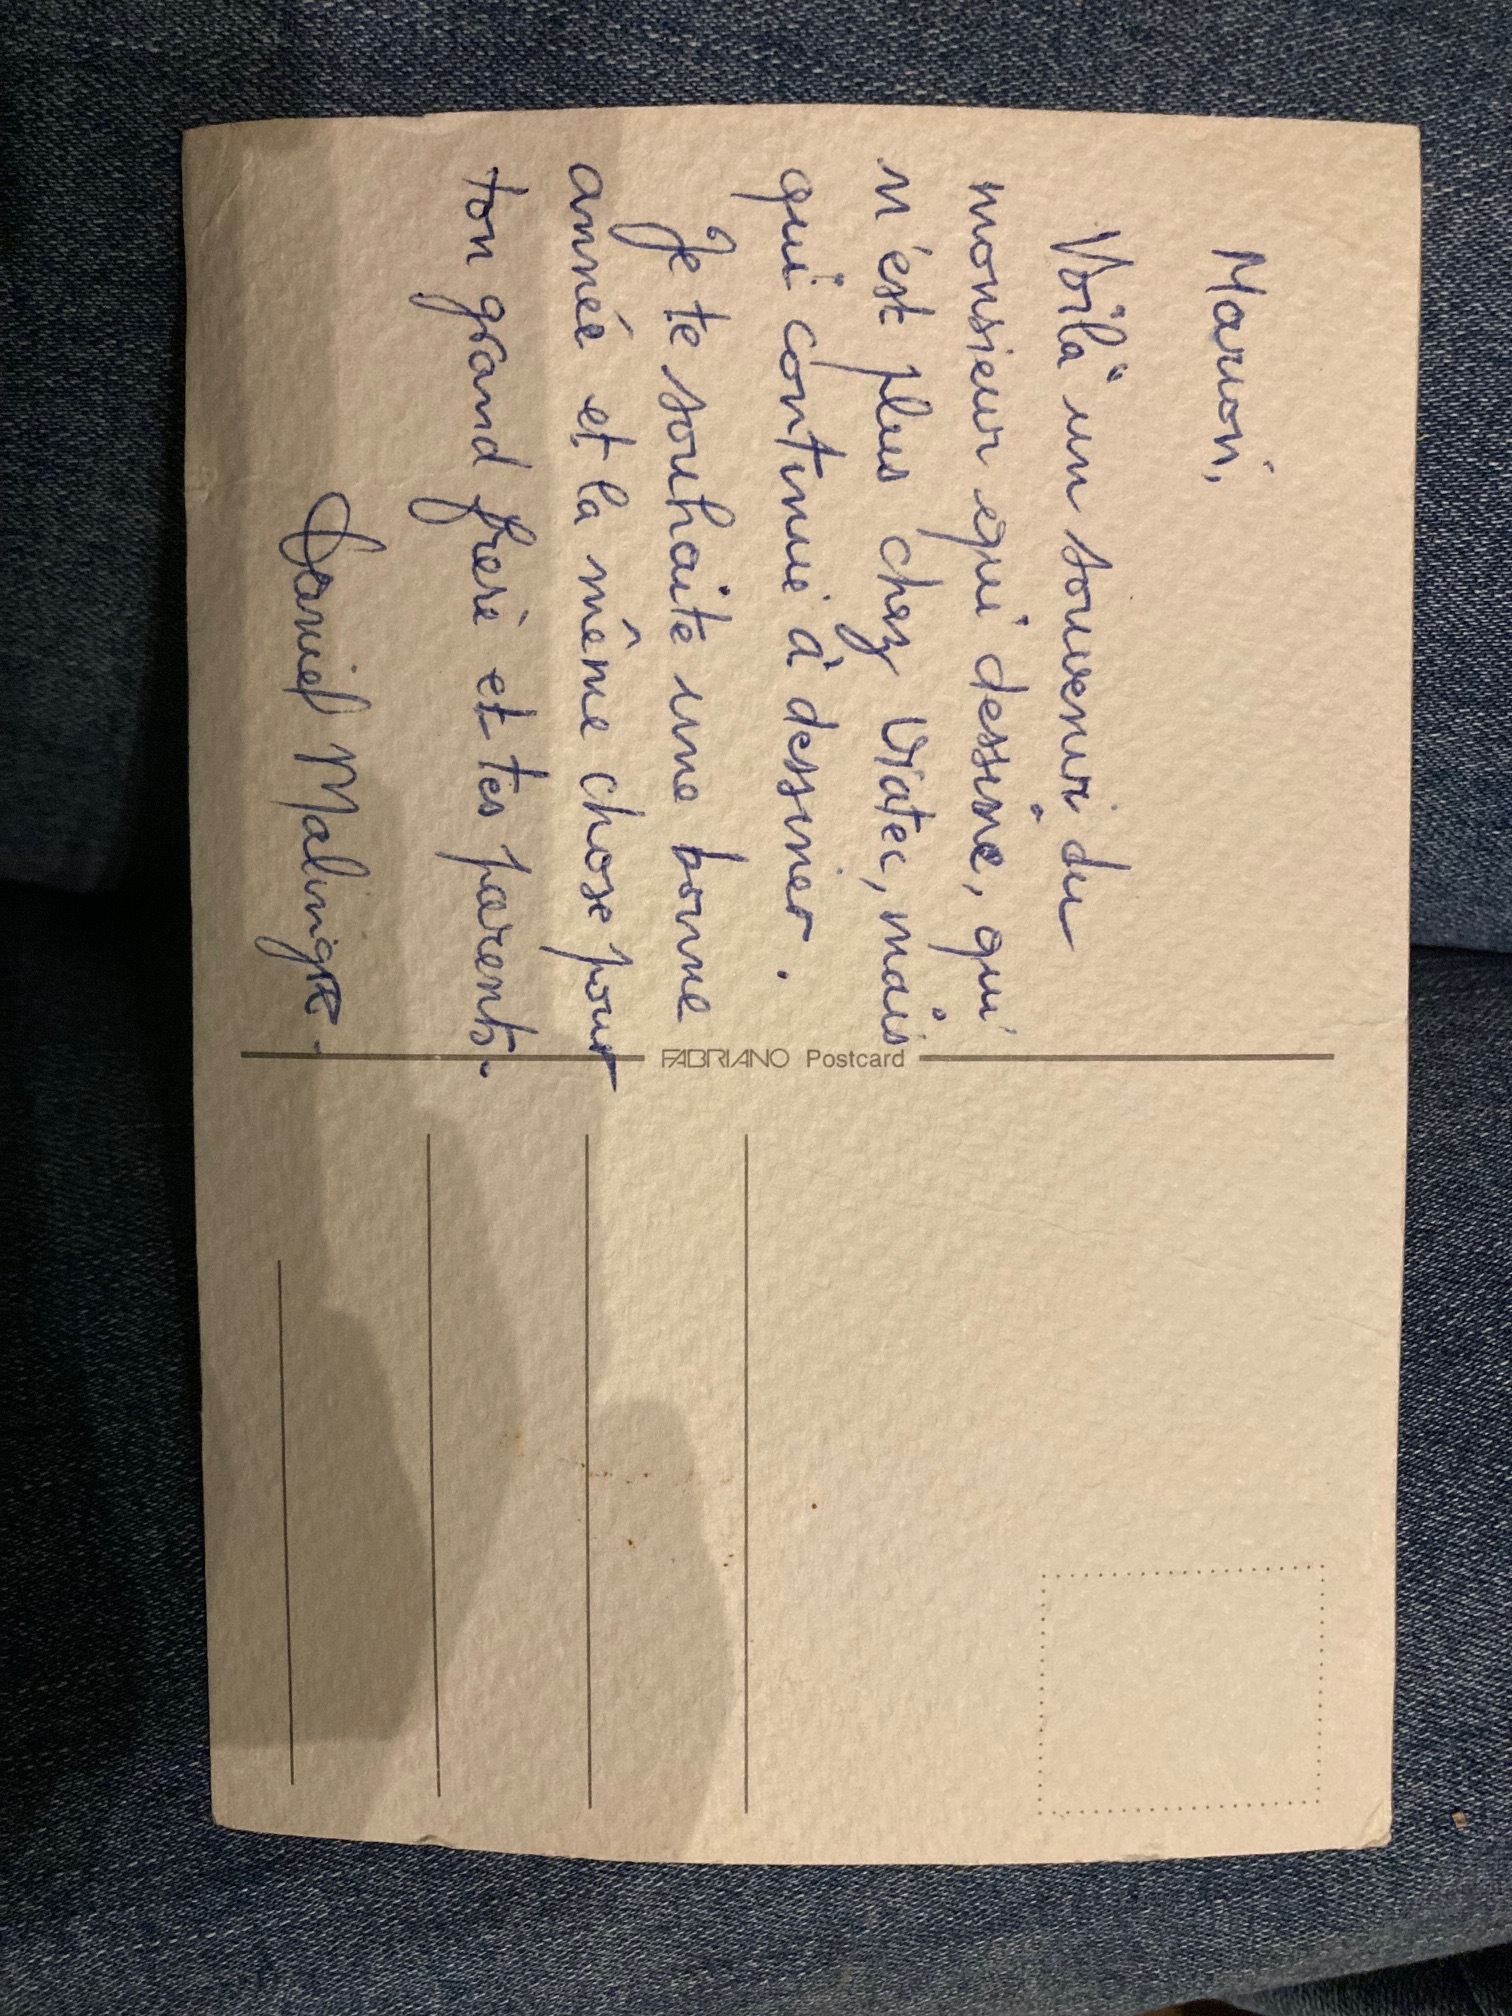 Marion,
Voilà un souvenir du
monsieur qui dessine, qui
n'est plus chez Viatec, mais
qui continue à dessiner.
Je te souhaite une bonne
année et la même chose pour
ton grand frère et tes parents.
Daniel Malingre.
FABRIANO Postcard